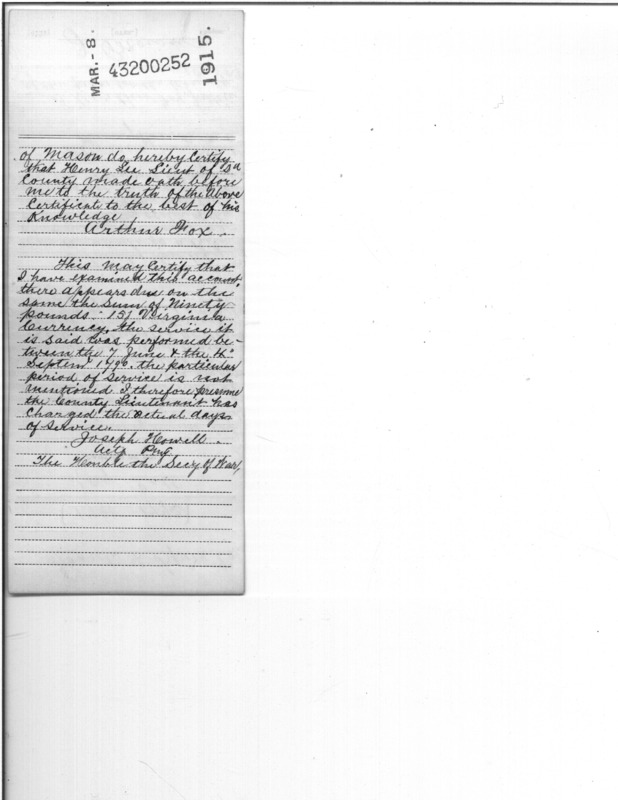 MAR.-8.
43200252
1915.
of Mason do hereby Certify
that Henry Lee Lieut of sd
County made oath before
me to the truth of the above
Certificate to the best of his
Knowledge
Arthur Fox.
This may Certify that
I have examined this account,
there appears due on the
same the Sum of Ninety
pounds " 15/ Virginia
Currency, the service it
is said was performed be-
tween the 7 June & the th
Septemr 1790. the particular
period of service is not
mentioned I therefore presume
the County Lieutenant has
Charged the actual days
of service.
Joseph Howell.
Actg PMG
The Honble the Secy of War,